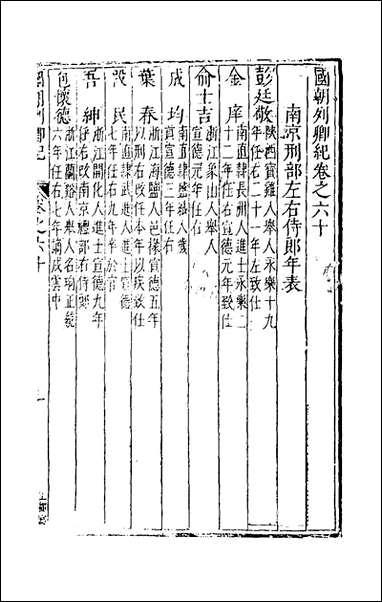 國朝列卿紀卷之六十
南京刑部左右侍郎年表
彭廷敬 陝西寶雞人舉人永樂十九
年任右二十一年左致仕
金庠 南直隸長洲人進士永樂二
十二年任右宣德元年致仕
俞士吉 浙江象山人舉人
宣德元年任右
成均 南直隸鹽城人歲
貢宣德三年任右
葉春 浙江海鹽人邑椽宣德五年
以刑右改任本年以疾致仕
段民 南直隸武進人進士宣德
七年任右九年卒於官
吾紳 浙江開化人進士宣德九年
任右改南京禮部右侍郎
包懷德 浙江蘭谿人舉人名瑜正統
六年任右七年謫戍雲中
國朝列卿紀
卷之六十
一